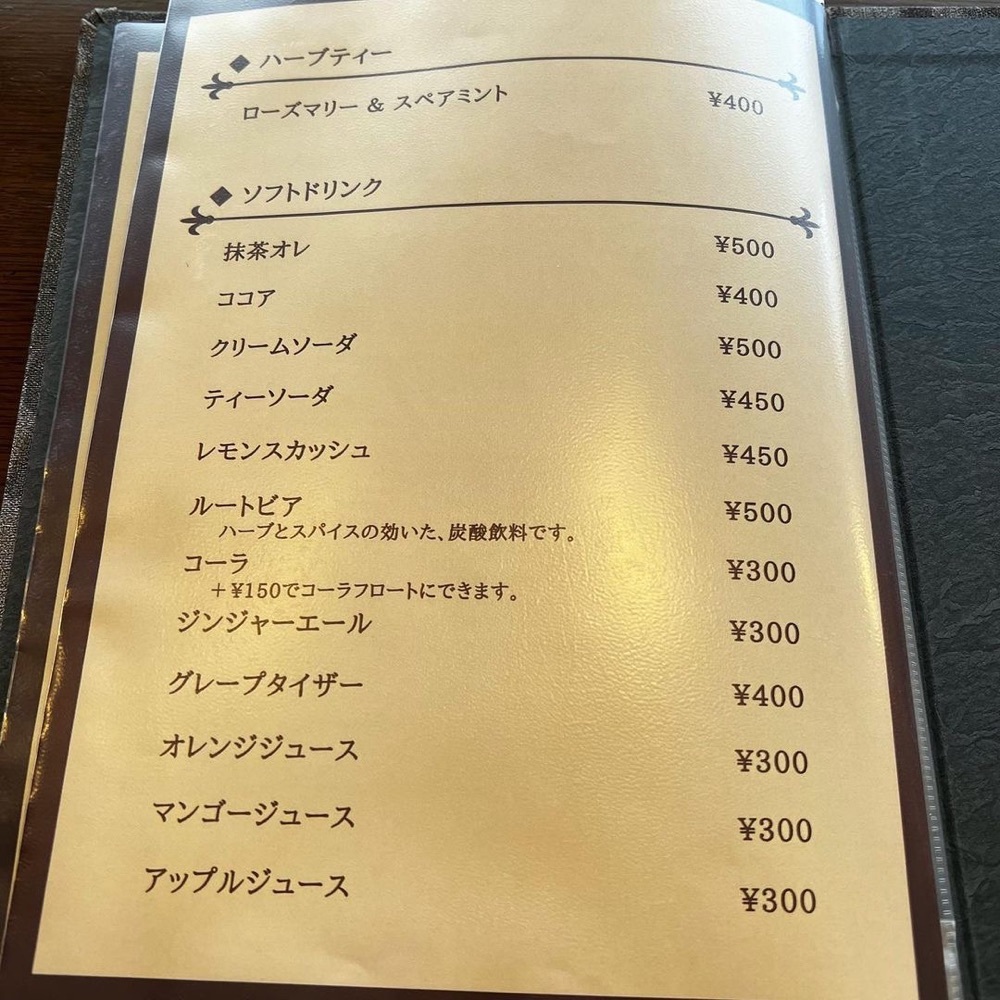 ◆ ハーブティー
ローズマリー & スペアミント ¥400
◆ ソフトドリンク
抹茶オレ ¥500
ココア ¥400
クリームソーダ ¥500
ティーソーダ ¥450
レモンスカッシュ ¥450
ルートビア ¥500
ハーブとスパイスの効いた、炭酸飲料です。
コーラ ¥300
＋¥150でコーラフロートにできます。
ジンジャーエール ¥300
グレープタイザー ¥400
オレンジジュース ¥300
マンゴージュース ¥300
アップルジュース ¥300